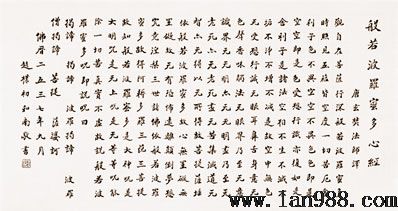 般若波羅蜜多心經
唐玄奘法師譯
觀自在菩薩行深般若波羅蜜多
時照見五蘊皆空度一切苦厄舍
利子色不異空空不異色色即是
空空即是色受想行識亦復如是
舍利子是諸法空相不生不滅不
垢不淨不增不減是故空中无色
无受想行識无眼耳鼻舌身意无
色聲香味觸法无眼界乃至无意
識界无无明亦无无明盡乃至无
老死亦无老死盡无苦集滅道无
智亦无得以无所得故菩提薩埵
依般若波羅蜜多故心无罣礙无
罣礙故无有恐怖遠離顛倒夢想
究竟涅槃三世諸佛依般若波羅
蜜多故得阿耨多羅三藐三菩提
故知般若波羅蜜多是大神咒是
大明咒是无上咒是无等等咒能
除一切苦真實不虛故說般若波
羅蜜多咒即說咒曰
揭諦揭諦 波羅揭諦 波羅
僧揭諦 菩提 薩婆訶
佛曆二五三七年九月
趙樸初和南敬書
www.1an988.com